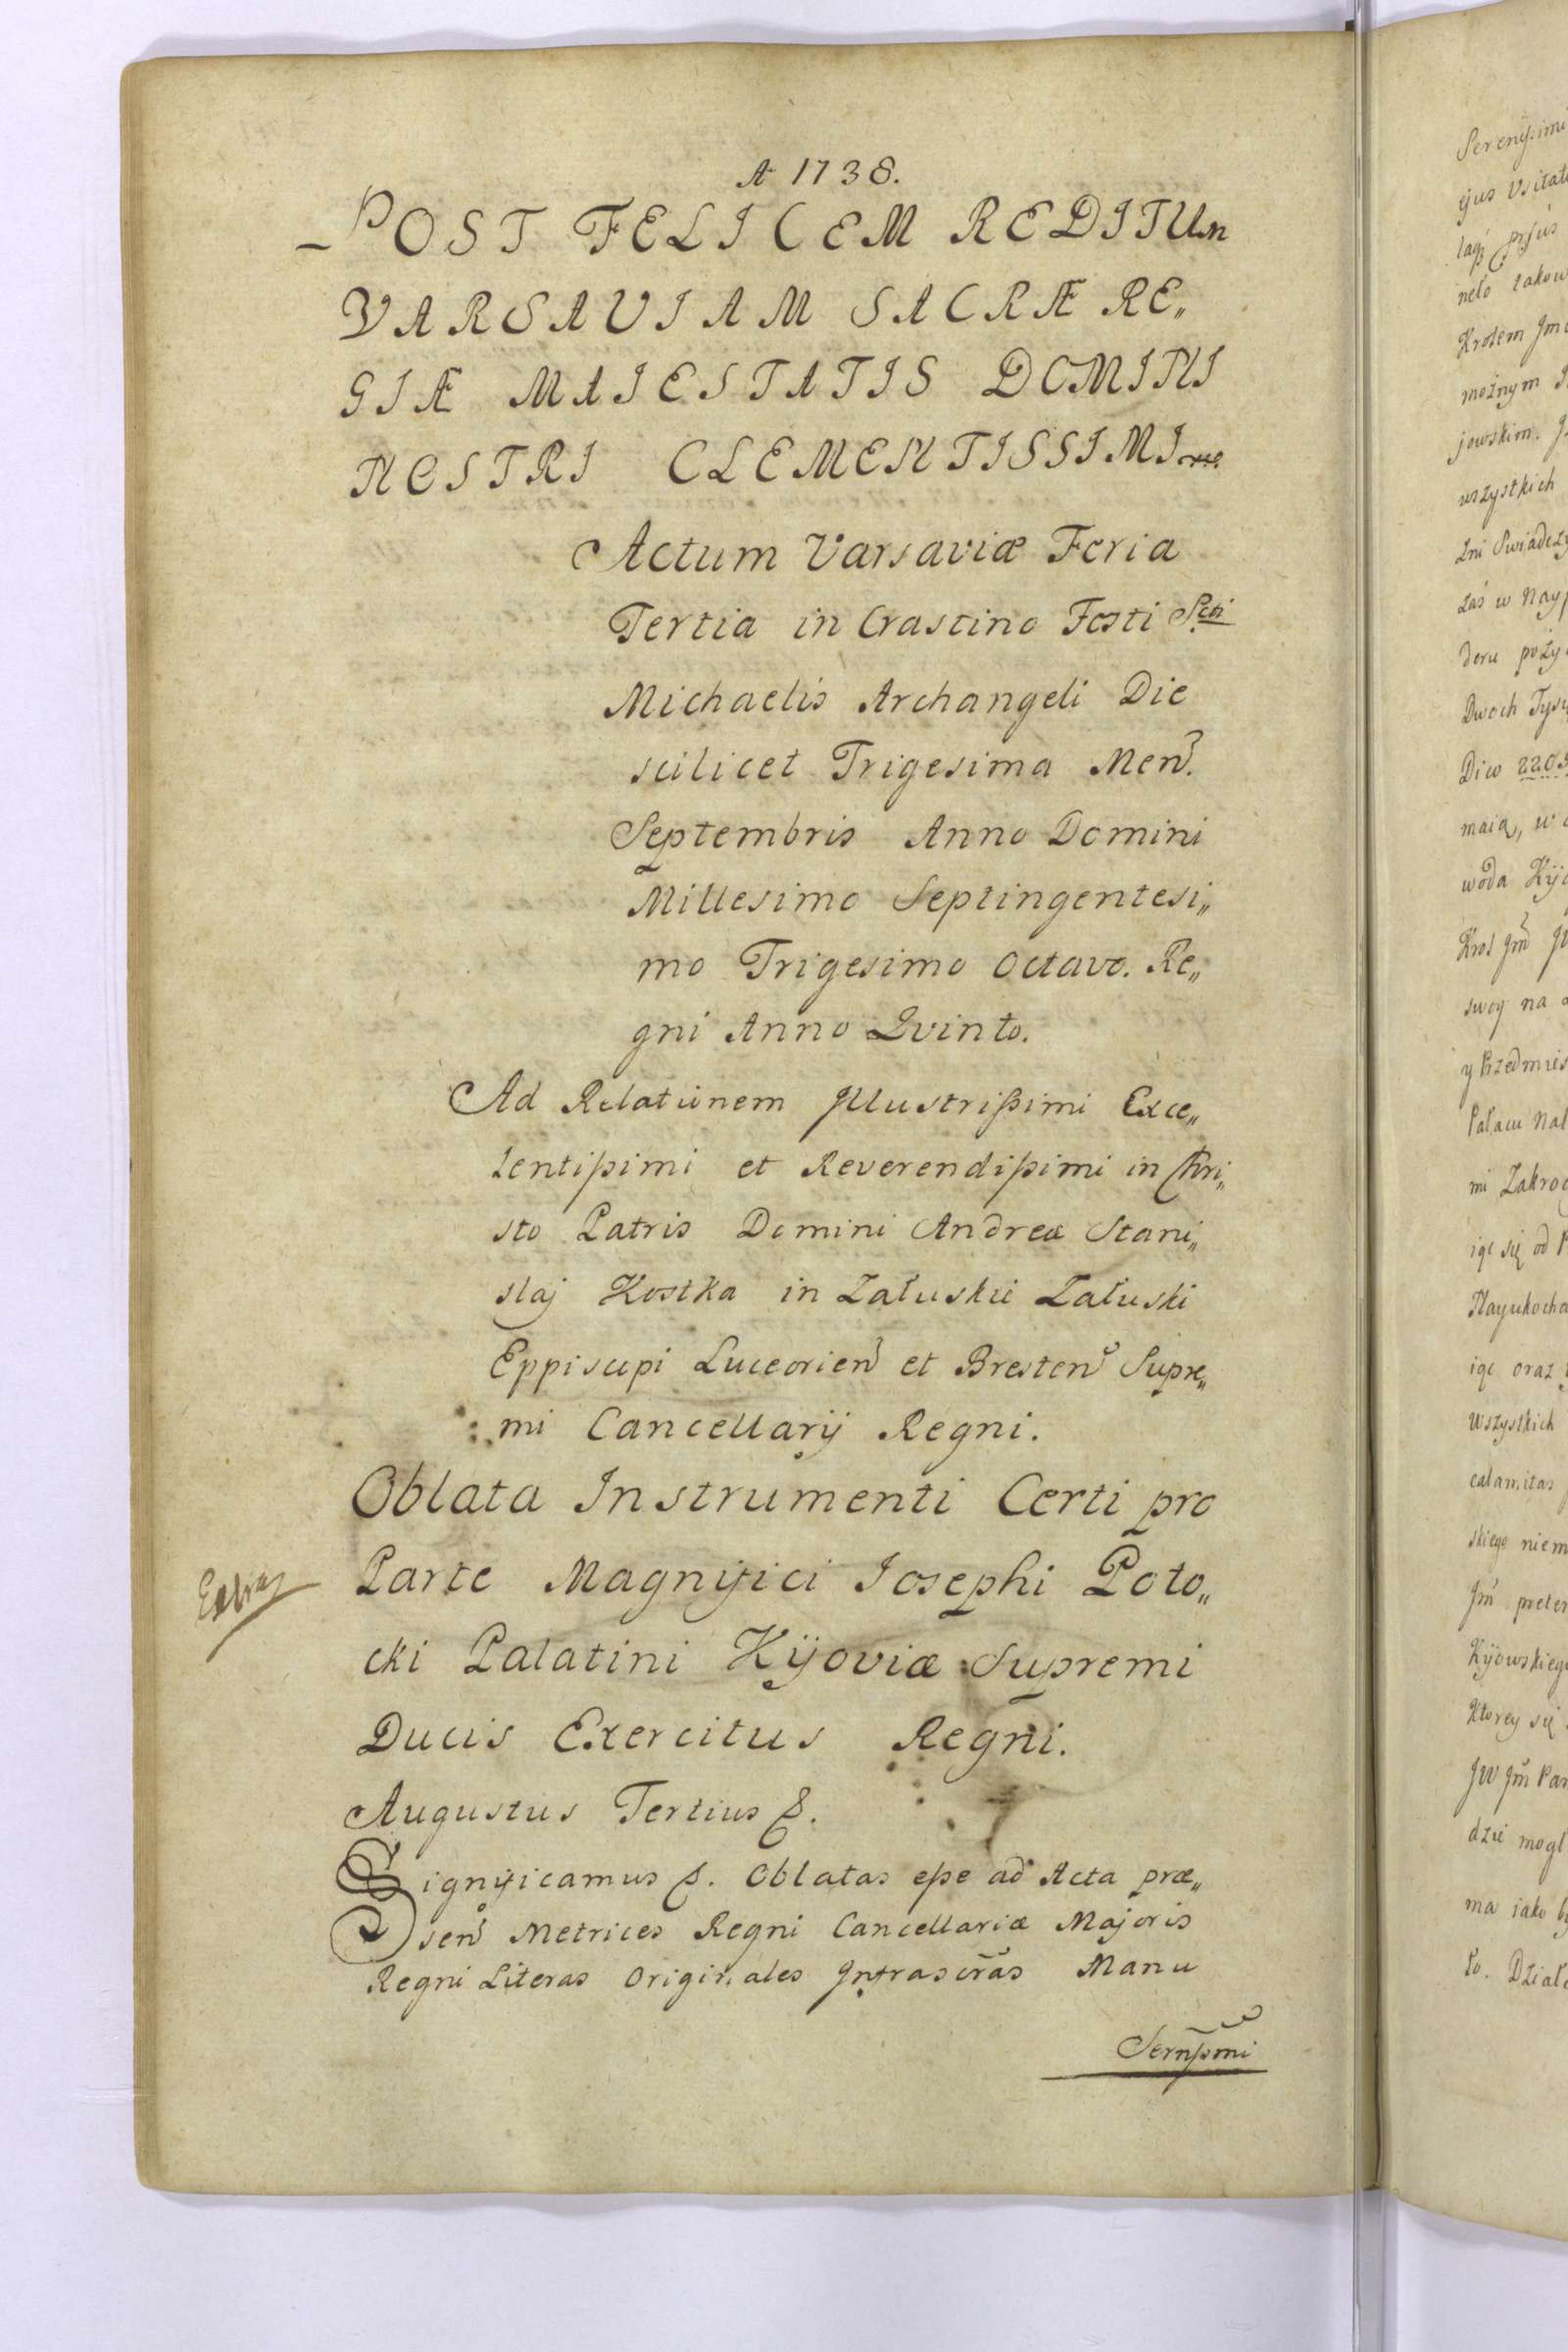 A 1738.
POST FELICEM REDITUM
VARSAVIAM SACRÆ RE„
GIÆ MAIESTATIS DOMINI
NOSTRI CLEMENTISSIMI
Actum Varsaviæ Feria
Tertia in Crastino Festi Scti
Michaelis Archangeli Die
scilicet Trigesima Men.
Septembris Anno Domini
Millesimo Septingentesi„
mo Trigesimo Octavo. Re„
gni Anno Qvinto.
Ad Relationem Jllustrißimi Exce„
lentißimi et Reverendißimi in Chri„
sto Patris Domini Andreæ Stani„
slaj Kostka in Załuskie Załuski
Eppiscopi Luceorien et Bresten Supre„
mi Cancellarij Regni.
Oblata Instrumenti Certi pro
Parte Magnifici Iosephi Poto„
cki Palatini Kijoviæ Supremi
Ducis Exercitus Regni.
Augustus Tertius &.
Significamus &. Oblatas eße ad Acta præ„
sen Metrices Regni Cancellariæ Majoris
Regni Literas Originales Jnfrascras Manu
Sernßmi
Serenißimi
Krolem
możnym
jowskim.
wszystkich
zaś w Nay
Dwoch
maią, w
woda
swoy na
Pałacu
mi
się od
oraz
Wszystkich
calamitas
skiego
Jm
Ktorey się
JW Jm Pan
dzie mogł
ma iako